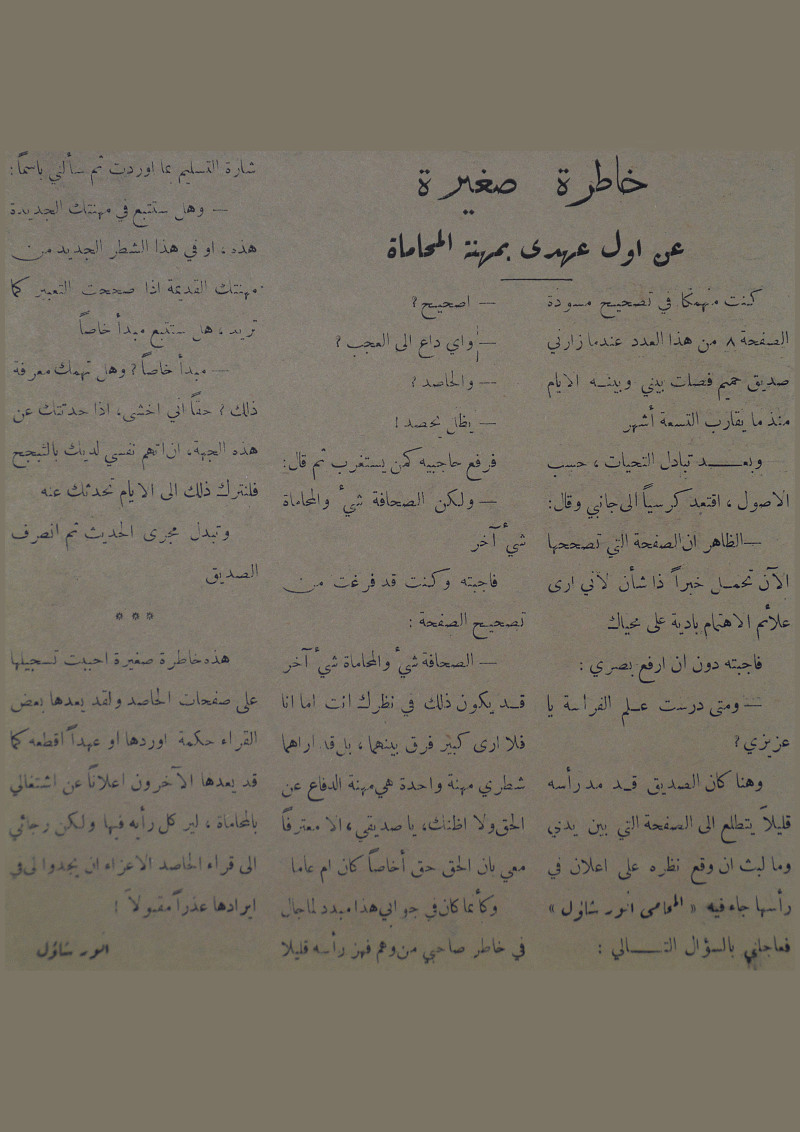 خاطرة صغيرة
عن اول عهدى بمهنة المحاماة
كنت منهمكا في تصحيح مسودة
الصفحة ٨ من هذا العدد عندما زارني
صديق حميم فصلت بيني وبينه الايام
منذ ما يقارب التسعة أشهر
وبعد تبادل التحيات ، حسب
الاصول ، اقتعد كرسياً الى جانبي وقال:
— الظاهر ان الصفحة التي تصححها
الآن تحمل خبراً ذا شأن لأني ارى
علائم الاهتمام بادية على محياك
فاجبته دون ان ارفع بصري :
— ومتى درست علم الفراسة يا
عزيزي ?
وهنا كان الصديق قد مد رأسه
قليلاً يتطلع الى الصفحة التي بين يدي
وما لبث ان وقع نظره على اعلان في
رأسها جاء فيه « المحامى انور شاؤل »
فعاجلني بالسؤال التالي :
— اصحيح ?
— واي داع الى العجب ?
— والحاصد ?
— يظل يحصد !
فرفع حاجبيه كمن يستغرب ثم قال:
— ولكن الصحافة شيء والمحاماة
شيء آخر
فاجبته وكنت قد فرغت من
تصحيح الصفحة :
— الصحافة شيء والمحاماة شيء آخر
قد يكون ذلك في نظرك انت اما انا
فلا ارى كبير فرق بينهما ، بل قد اراهما
شطري مهنة واحدة هي مهنة الدفاع عن
الحق ولا اظنك، يا صديقي، الا معترفاً
معي بان الحق حق أخاصاً كان ام عاما
وكأنما كان في جوابي هذا مبدد لما جال
في خاطر صاحبي من وهم فهز رأسه قليلا
شارة التسليم بما اوردت ثم سألني باسماً:
— وهل ستتبع في مهنتك الجديدة
هذه ، او في هذا الشطر الجديد من
مهنتك القديمة اذا صححت التعبير كما
تريد ، هل ستتبع مبدأ خاصاً
— مبدأ خاصاً ? وهل تهمك معرفة
ذلك ? حقاً اني اخشى، اذا حدثتك عن
هذه الجهة، ان اتهم نفسي لديك بالتبجح
فلنترك ذلك الى الايام تحدثك عنه
وتبدل مجرى الحديث ثم انصرف
الصديق
* * *
هذه خاطرة صغيرة احببت تسجيلها
على صفحات الحاصد ولقد يعدها بعض
القراء حكمة اوردها او عهداً اقطعه كما
قد يعدها الآخرون اعلاناً عن اشتغالي
بالمحاماة ، لير كل رأيه فيها ولكن رجائي
الى قراء الحاصد الاعزاء ان يجدوا لي في
ايرادها عذراً مقبولاً !
انور شاؤل